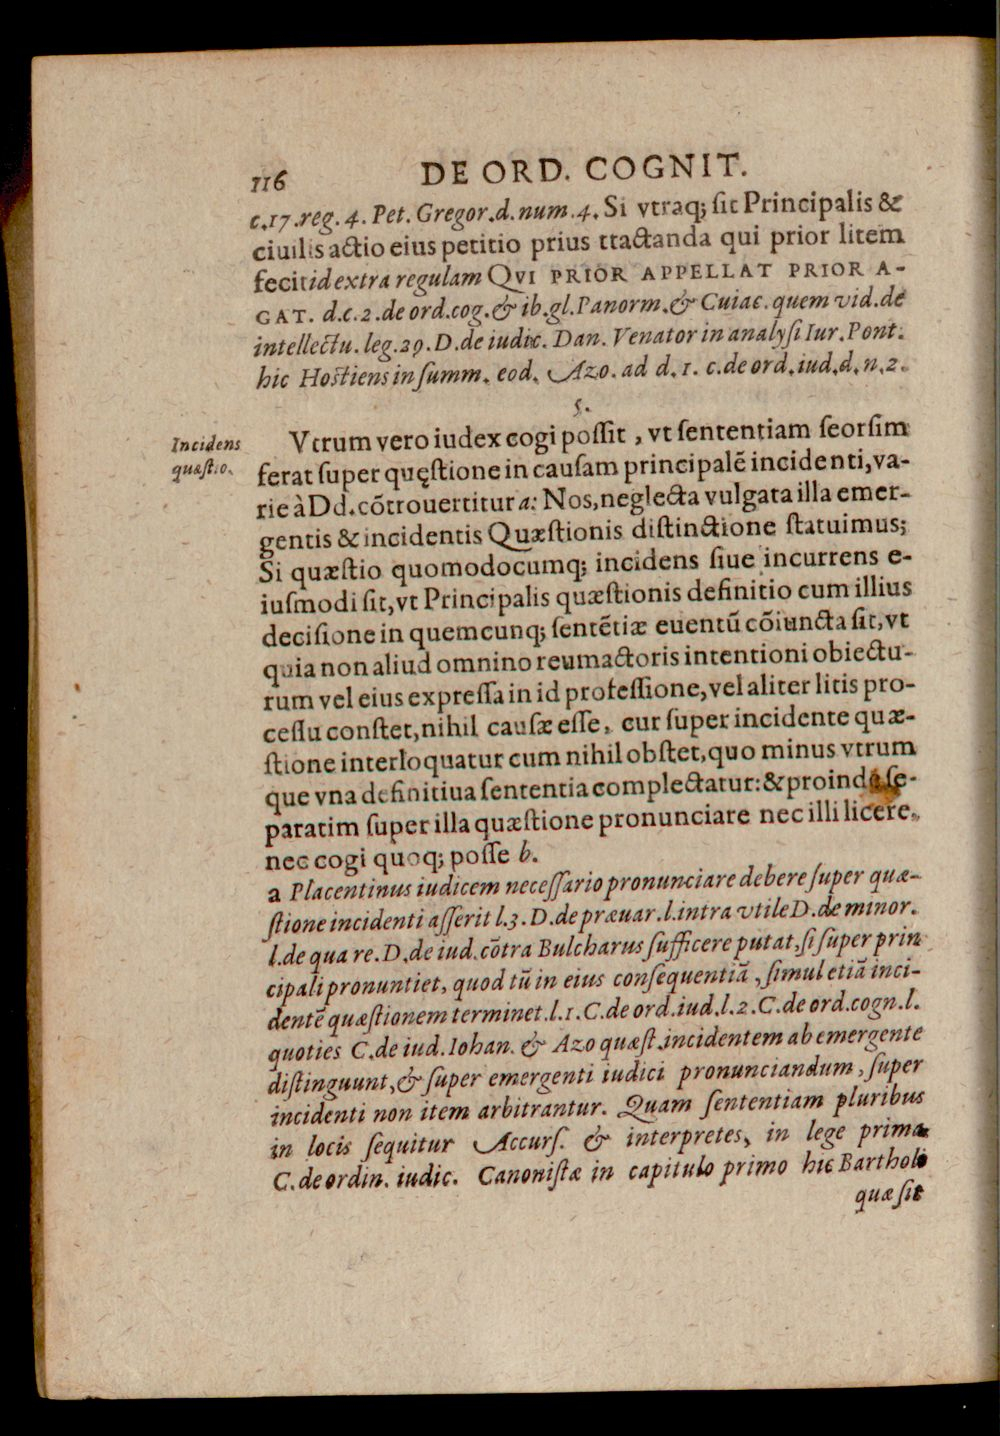 116 DE ORD. COGNIT.
c.17.reg. 4. Pet. Gregor.d. num.4. Si vtraq; ſit Principalis &
ciuilis actio eius petitio prius ttactanda qui prior litem
fecit id extra regulam QVI PRIOR APPELLAT PRIOR A-
GAT. d.c.2.de ord.cog.& ib.gl.Panorm.& Cuiac.quem vid.de
intellectu. leg.29.D.de iudic. Dan. Venator in analyſi Iur.Pont.
hic Hostiens in ſumm. eod. Azo. ad d.1. c.de ord.iud.d.n.2.
5.
Incidens
quæſtio.
Vtrum vero iudex cogi poſſit, vt ſententiam ſeorſim
ferat ſuper quęſtione in cauſam principalẽ incidenti, va-
rie à Dd. cõtrouertitur a: Nos, neglecta vulgata illa emer-
gentis & incidentis Quæſtionis diſtinctione ſtatuimus;
Si quæſtio quomodocumq; incidens ſiue incurrens e-
iuſmodi ſit, vt Principalis quæſtionis definitio cum illius
deciſione in quemcunq; ſentẽtiæ euentũ cõiuncta ſit, vt
quia non aliud omnino reum actoris intentioni obiectu-
rum vel eius expreſſa in id profeſſione, vel aliter litis pro-
ceſſu conſtet, nihil cauſæ eſſe, cur ſuper incidente quæ-
ſtione interloquatur cum nihil obſtet, quo minus vtrum
que vna definitiua ſententia complectatur: & proinde ſe-
paratim ſuper illa quæſtione pronunciare nec illi licere,
nec cogi quoq; poſſe b.
a Placentinus iudicem neceſſario pronunciare debere ſuper quæ-
ſtione incidenti aſſerit l.3.D.de præuar.l.intra vtile D.de minor.
l.de qua re.D.de iud.cõtra Bulcharus ſufficere putat, ſi ſuper prin
cipali pronuntiet, quod tũ in eius conſequentiã, ſimul etiã inci-
dentẽ quæſtionem terminet.l.1.C.de ord.iud.l.2.C.de ord.cogn.l.
quoties C.de iud. Iohan. & Azo quæſt.incidentem ab emergente
diſtinguunt, & ſuper emergenti iudici pronunciandum, ſuper
incidenti non item arbitrantur. Quam ſententiam pluribus
in locis ſequitur Accurſ. & interpretes, in lege prima
C.de ordin. iudic. Canoniſtæ in capitulo primo hic Bartholi
quæ ſit